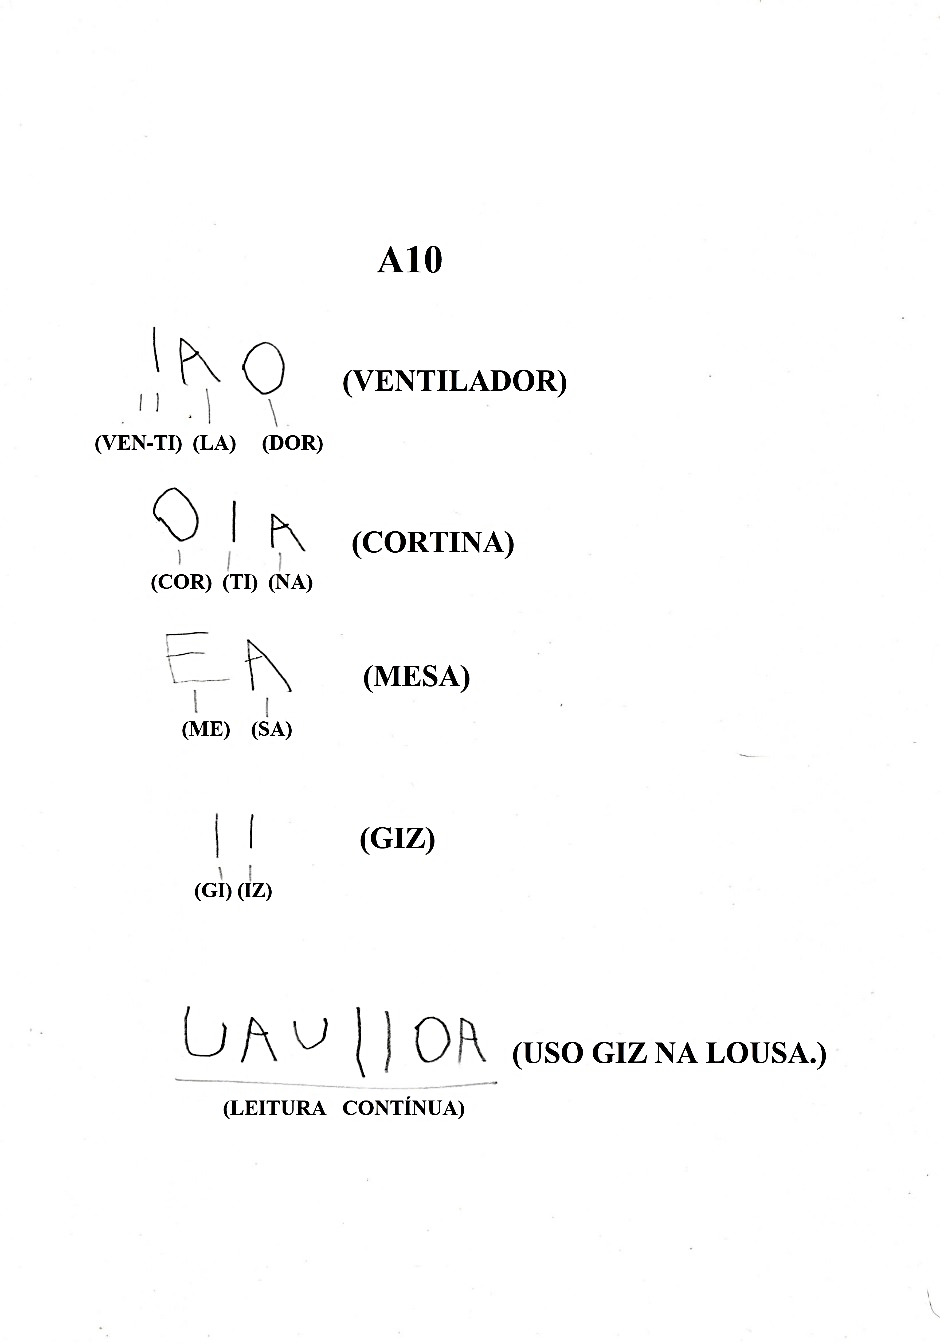 A10
I A O (VENTILADOR)
(VEN-TI) (LA) (DOR)
O I A (CORTINA)
(COR) (TI) (NA)
E A (MESA)
(ME) (SA)
I I (GIZ)
(GI) (IZ)
U A U I I O A (USO GIZ NA LOUSA.)
(LEITURA CONTÍNUA)